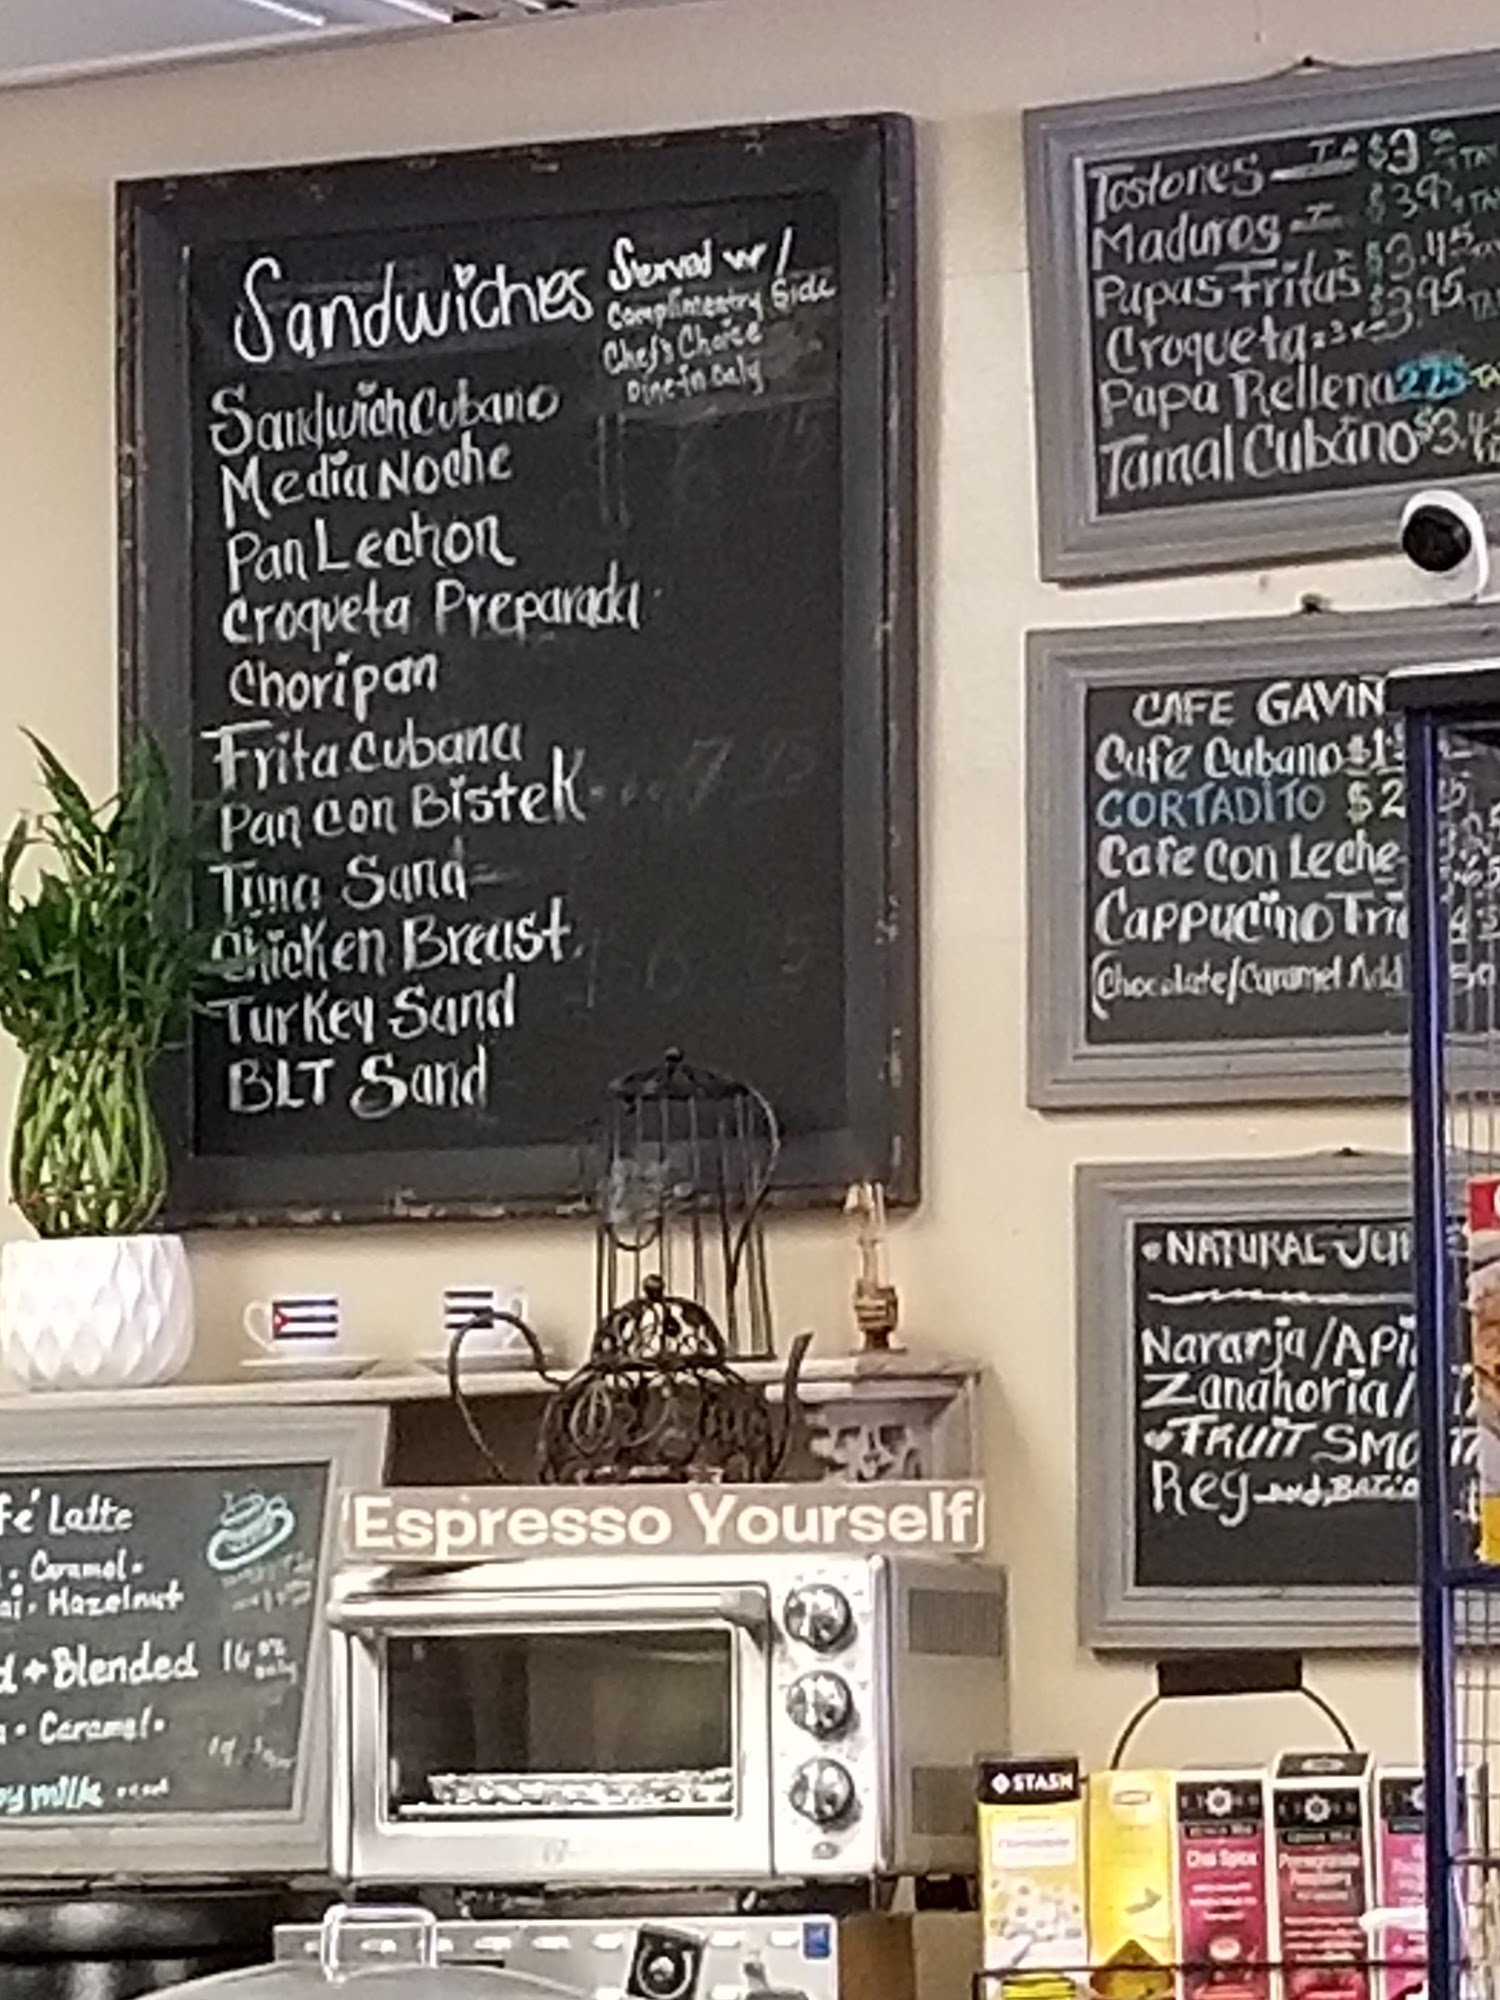 Sandwiches
Served w/
Complimentry Side
Chef's Choice
Dine-in Only
Sandwich Cubano
Media Noche
Pan Lechon
Croqueta Preparada
Choripan
Frita Cubana
Pan con Bistek
Tuna Sand
Chicken Breast
Turkey Sand
BLT Sand
Tostones
Maduros
Papas Fritas $3.45
Croqueta
Papa Rellena
Tamal Cubano
CAFE GAVIN
Cafe Cubano
CORTADITO $2
Cafe Con Leche
Cappucino
Chocolate/Caramel Add
NATURAL JUI
Naranja/
Zanahoria/
FRUIT SMO
Reg and,
Latte
Caramel
Hazelnut
+ Blended 16 oz only
Caramel
milk
Espresso Yourself
STASH
Chai Spice
Pomegranate